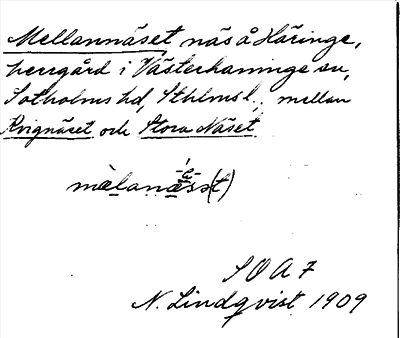 Mellannäset näs å Häringe,
herrgård i Västerhaninge sn,
Sotholms hd, Sthlms l., mellan
Krignäset och Stora Näset.
mèlanæ̀s(t)
S O A 7
N. Lindqvist 1909